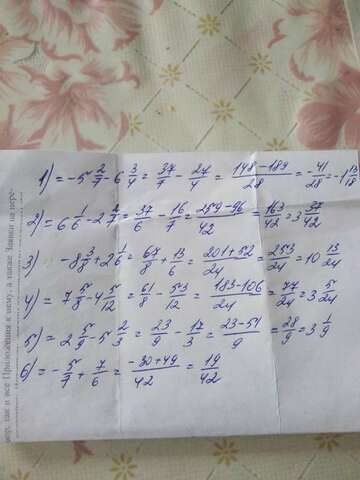 1) = -5 2/7 - 6 3/4 = 37/7 - 27/4 = 148-189/28 = -41/28 = -1 13/28
2) = 6 1/6 - 2 2/7 = 37/6 - 16/7 = 259-96/42 = 163/42 = 3 37/42
3) -8 3/8 + 2 1/6 = 67/8 + 13/6 = 201+52/24 = 253/24 = 10 13/24
4) = 7 5/8 - 4 5/12 = 61/8 - 53/12 = 183-106/24 = 77/24 = 3 5/24
5) = 2 5/9 - 5 2/3 = 23/9 - 17/3 = 23-51/9 = 28/9 = 3 1/9
6) = -5/7 + 7/6 = -30+49/42 = 19/42
так и все Приложения к нему, а также Заявки на пере-